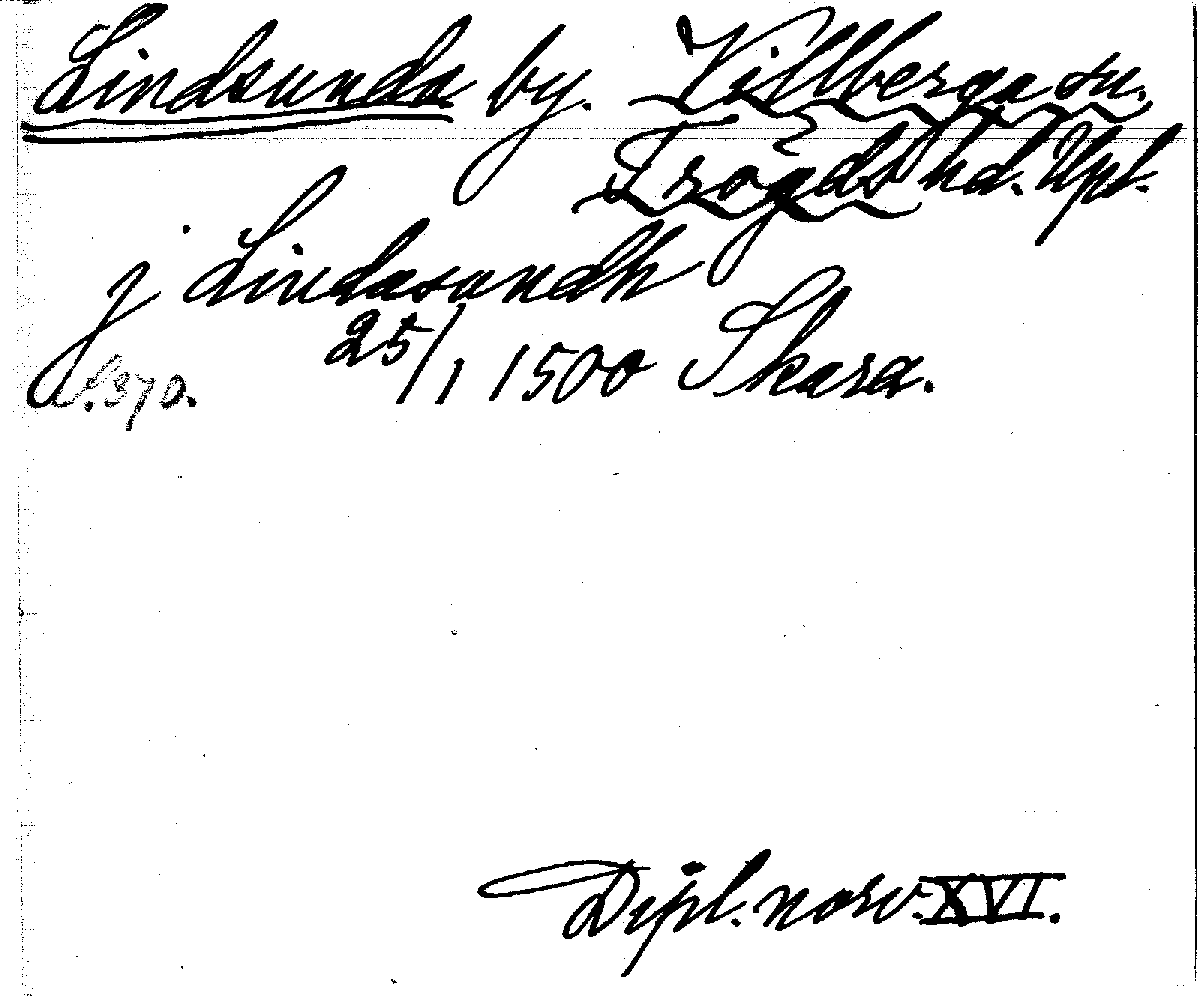 Lindsunda by. Villberga sn.
Trögds hd. Upl.
j Lindasundh
25/1 1500 Skara.
s. 370.
Dipl. norv. XVI.